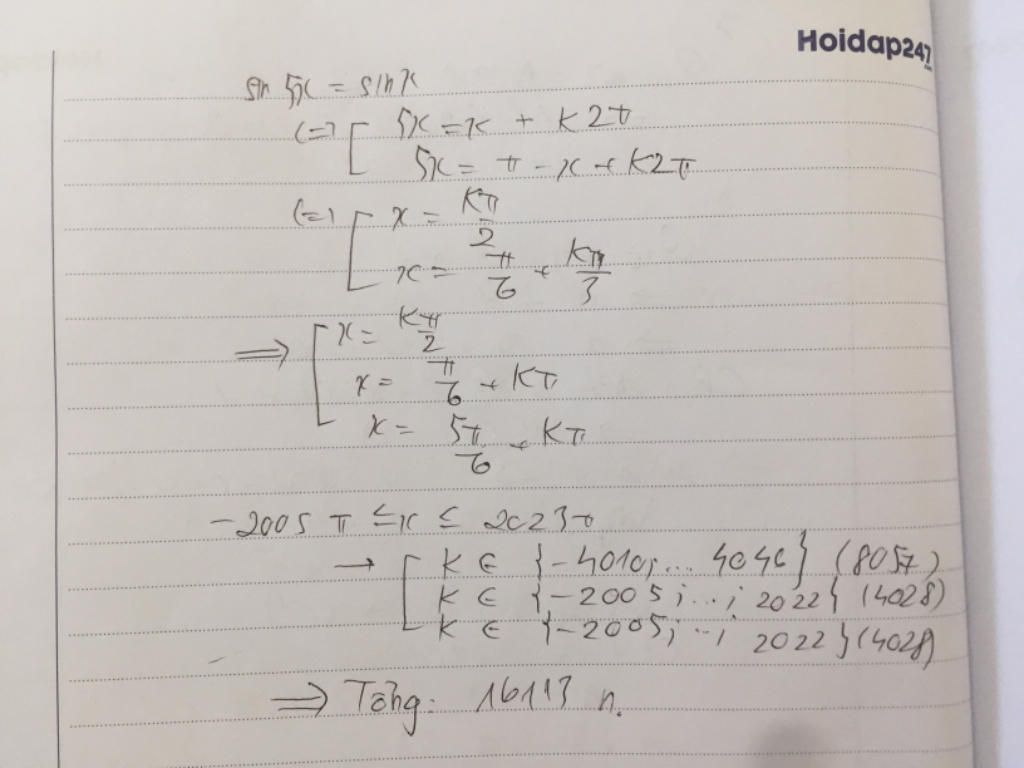 Hoidap247
sin 5x = sin x
(=) [ 5x = x + k2π
5x = π - x + k2π
(=) [ x = kπ/2
x = π/6 + kπ/3
⟹ [ x = kπ/2
x = π/6 + kπ
x = 5π/6 + kπ
-2005π ≤ x ≤ 2023π
→ [ k ∈ {-4010; ... 4046} (8057)
k ∈ {-2005; ...; 2022} (4028)
k ∈ {-2005; ...; 2022} (4028)
⟹ Tổng: 16113 n.